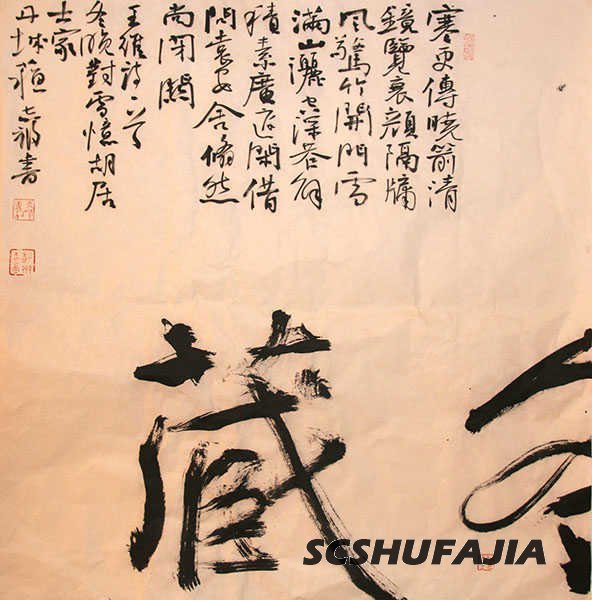 寒更傳曉箭清
鏡覽衰顔隔牖
風驚竹開門雪
滿山灑空深巷靜
積素廣庭閑借
問袁安舍翛然
尚閉關
王維詩一首
冬晚對雪憶胡居
士家
書
藏
SCSHUFAJIA